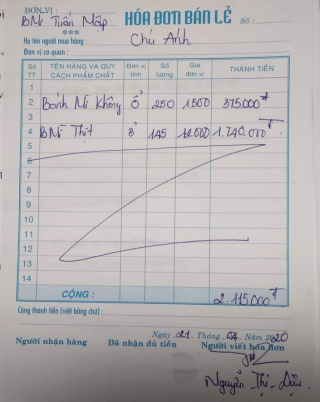 ĐƠN VỊ: BMì Tuấn Mập
HÓA ĐƠN BÁN LẺ
Số:
***
Họ tên người mua hàng: Chú Anh
Đơn vị cơ quan:
Số TT TÊN HÀNG VÀ QUY CÁCH PHẨM CHẤT Đơn vị tính Số lượng Giá đơn vị THÀNH TIỀN
1
2 Bánh Mì Không Ổ 250 1500 375.000đ
3
4 BMì Thịt Ổ 145 12.000 1.740.000đ
5
6
7
8
9
10
11
12
13
14
CỘNG: 2.115.000đ
Cộng thành tiền (viết bằng chữ):
Ngày 21 Tháng 04 Năm 2020
Người nhận hàng Đã nhận đủ tiền Người viết hóa đơn
Nguyễn Thị Diệu